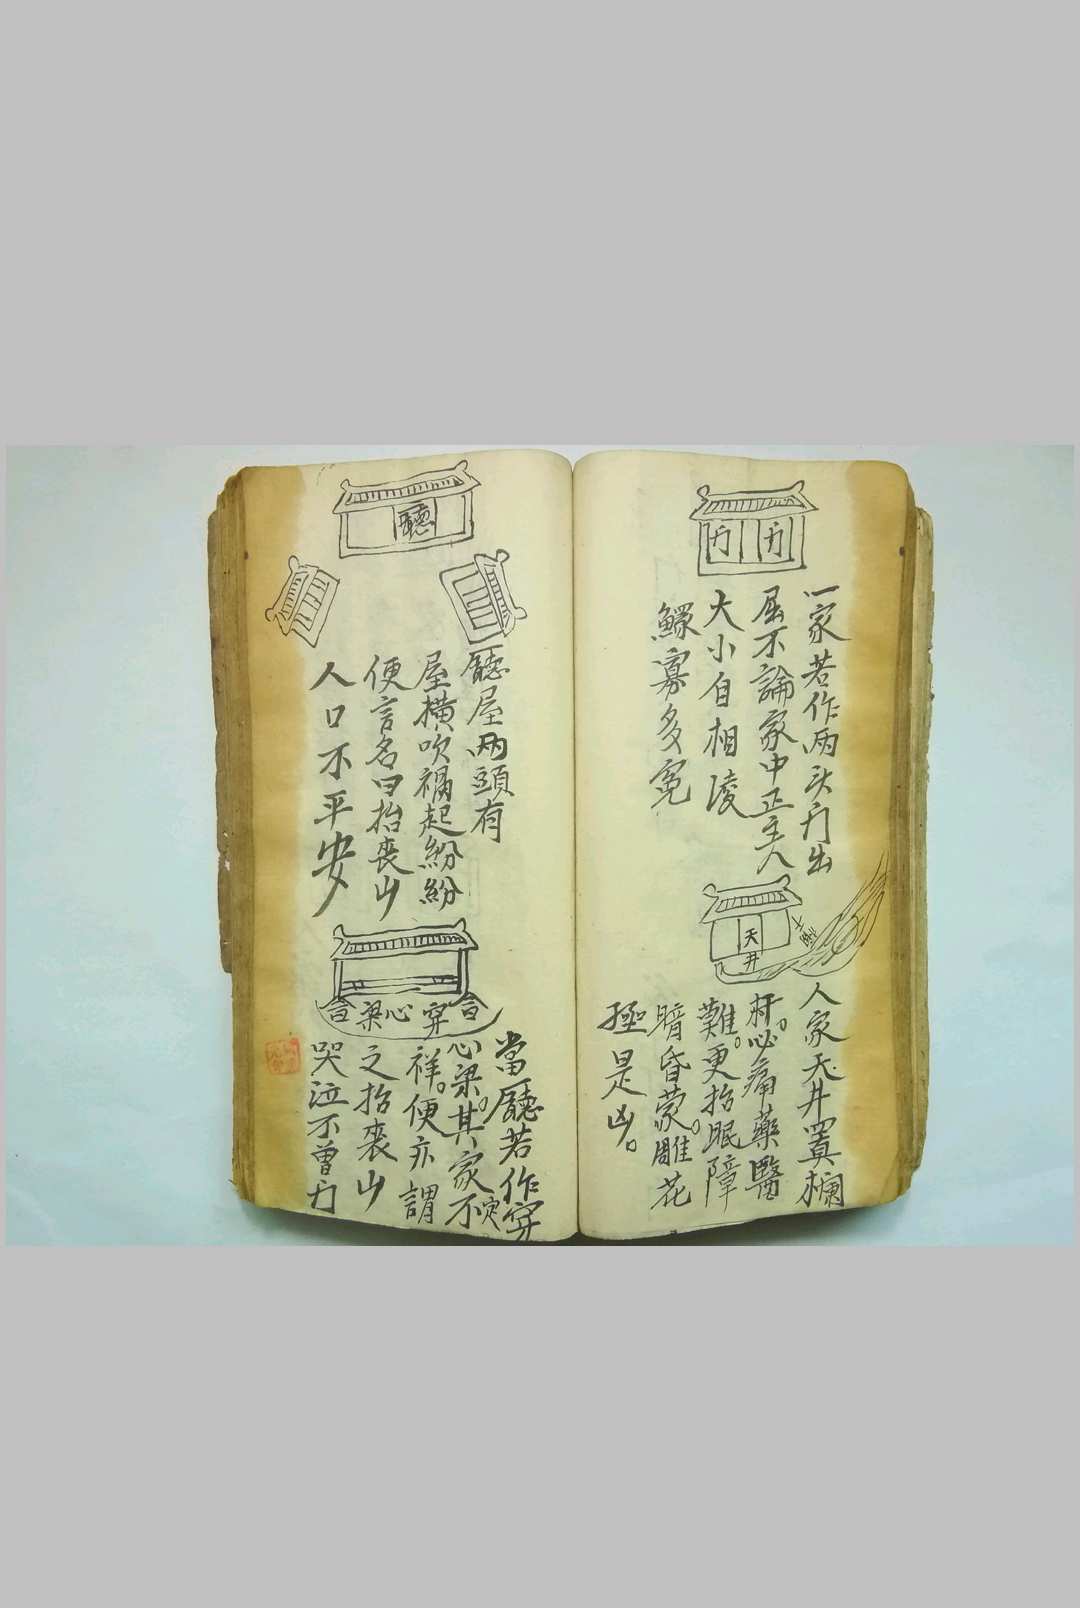 门 门
一家若作両头门出
屈不論家中正主人
大小自相凌
鰥寡多寃
天井
人家天井置欄
肝心痛藥醫
難。更招眼障
暗昏蒙。雕花
極是凶。
廳
廳屋両頭有
屋横吹禍起紛紛
便言名曰抬喪山
人口不平安
穿心梁
當廳若作穿
心梁。其家定不
祥。便亦謂
之抬喪山
哭泣不曾门